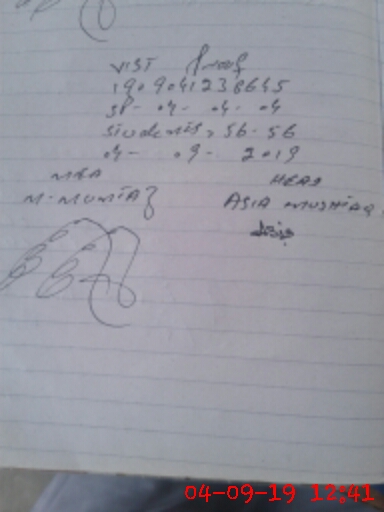 VIST Proof
1909041238645
SP- 04- 04- 04
Students, 56-56
04- 09- 2019
MEA HEAD
M. MUMTAZ ASIA MUSHTAQ
04-09-19 12:41